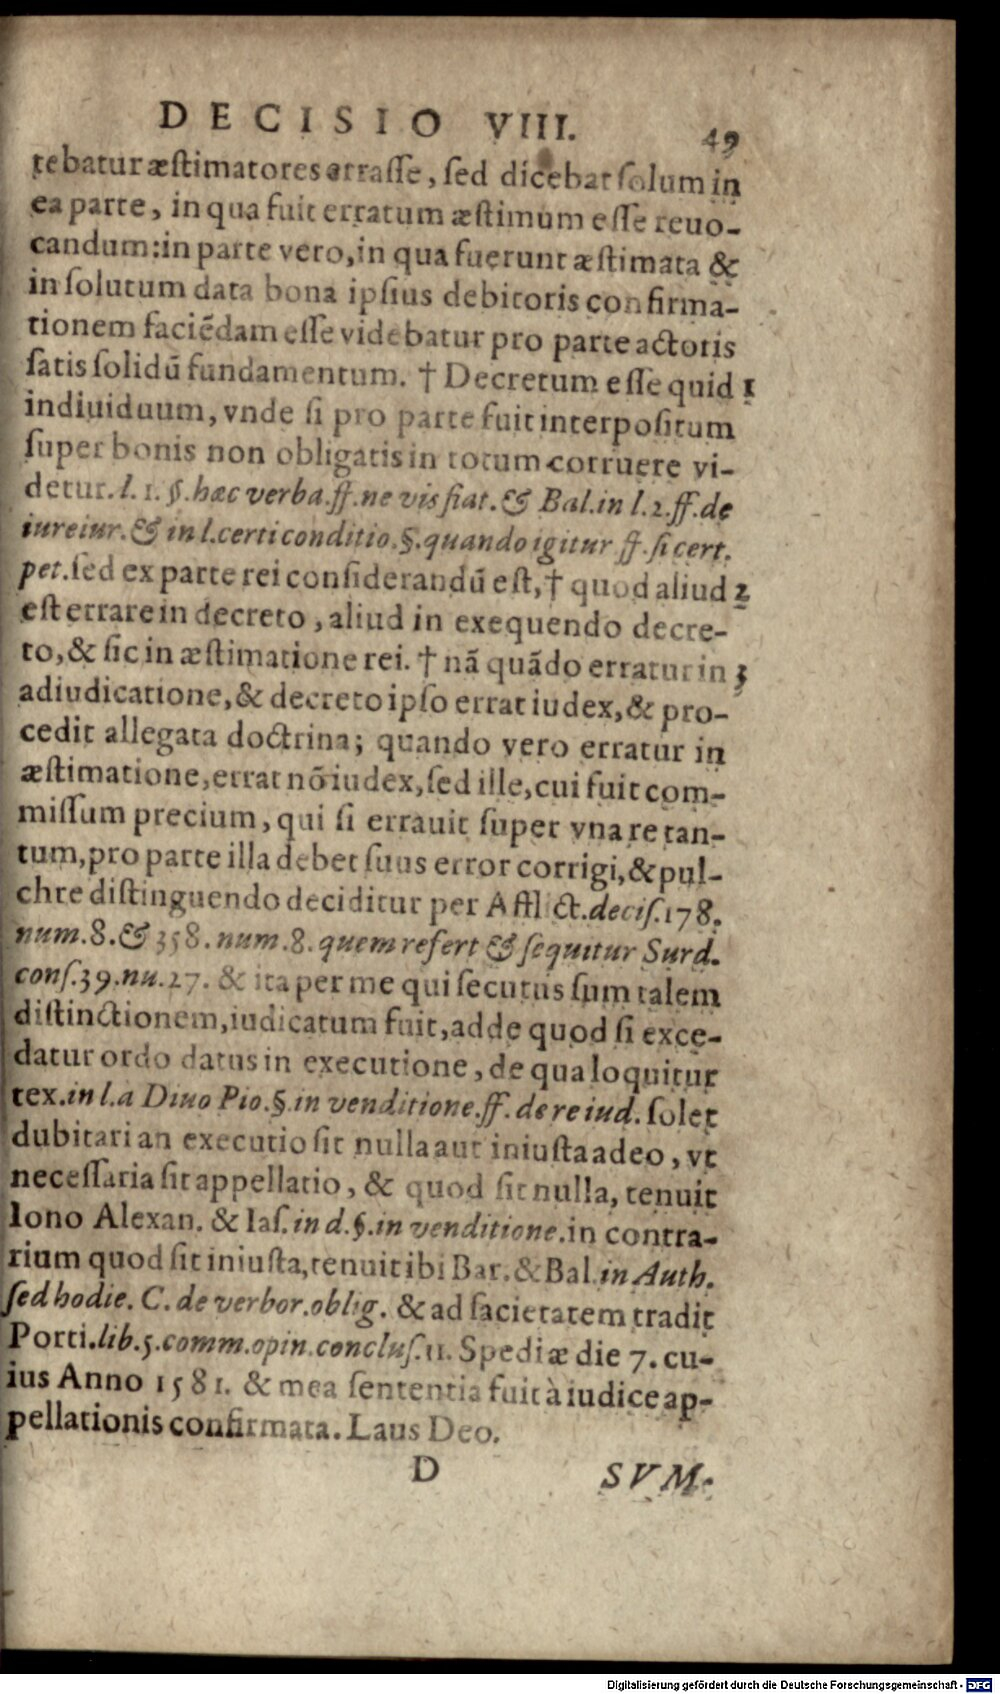 DECISIO VIII. 49
tebatur æstimatores errasse, sed dicebat solum in
ea parte, in qua fuit erratum æstimum esse reuo-
candum: in parte vero, in qua fuerunt æstimata &
in solutum data bona ipsius debitoris confirma-
tionem faciẽdam esse videbatur pro parte actoris
satis solidũ fundamentum. † Decretum esse quid 1
indiuiduum, vnde si pro parte fuit interpositum
super bonis non obligatis in totum corruere vi-
detur. l. 1. §. hæc verba. ff. ne vis fiat. & Bal. in l. 2. ff. de
iureiur. & in l. certi conditio. §. quando igitur ff. si cert.
pet. sed ex parte rei considerandũ est, † quod aliud 2
est errare in decreto, aliud in exequendo decre-
to, & sic in æstimatione rei. † nã quãdo erratur in 3
adiudicatione, & decreto ipso errat iudex, & pro-
cedit allegata doctrina; quando vero erratur in
æstimatione, errat nõ iudex, sed ille, cui fuit com-
missum precium, qui si errauit super vna re tan-
tum, pro parte illa debet suus error corrigi, & pul-
chre distinguendo deciditur per Afflict. decis. 178.
num. 8. & 358. num. 8. quem refert & sequitur Surd.
cons. 39. nu. 27. & ita per me qui secutus sum talem
distinctionem, iudicatum fuit, adde quod si exce-
datur ordo datus in executione, de qua loquitur
tex. in l. a Diuo Pio. §. in venditione. ff. de re iud. solet
dubitari an executio sit nulla aut iniusta adeo, vt
necessaria sit appellatio, & quod sit nulla, tenuit
Iono Alexan. & Ias. in d. §. in venditione. in contra-
rium quod sit iniusta, tenuit ibi Bar. & Bal. in Auth.
sed hodie. C. de verbor. oblig. & ad sacietatem tradit
Porti. lib. 5. comm. opin. conclus. 11. Spediæ die 7. cu-
ius Anno 1581. & mea sententia fuit à iudice ap-
pellationis confirmata. Laus Deo.
D SVM-
Digitalisierung gefördert durch die Deutsche Forschungsgemeinschaft - DFG